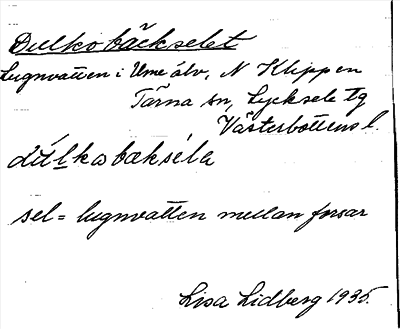 Dulkobäckselet
Lugnvatten i Ume älv, N Klippen
Tärna sn, Lycksele tg
Västerbottens l.
dúlkabæksèla
sel = lugnvatten mellan forsar
Lisa Lidberg 1935.